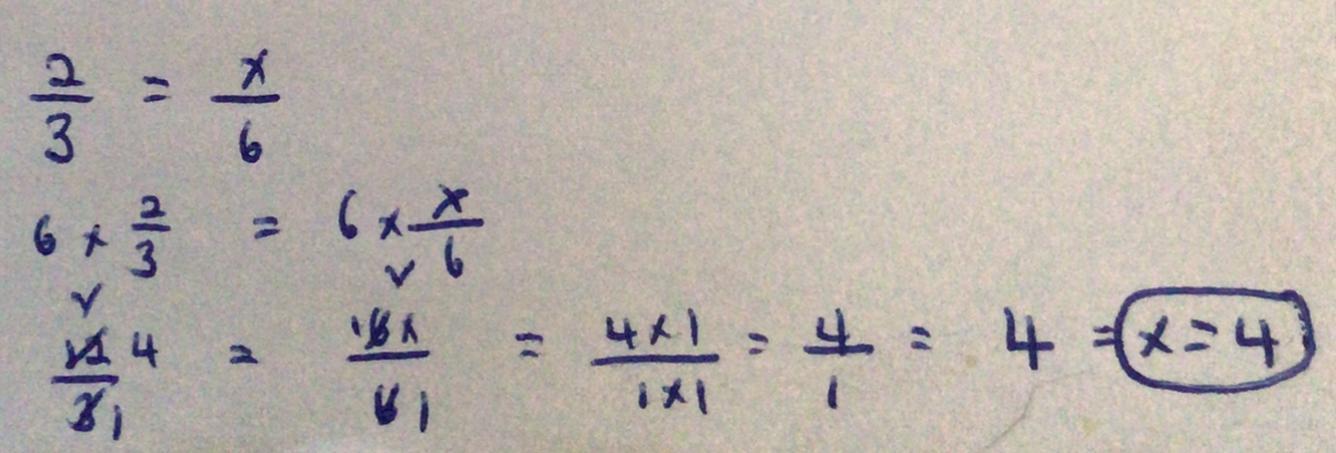 2/3 = x/6
6 x 2/3 = 6 x x/6
✓ ✓
12/3 4/1 = 1 6x/6 1 = 4x1/1x1 = 4/1 = 4 = x = 4